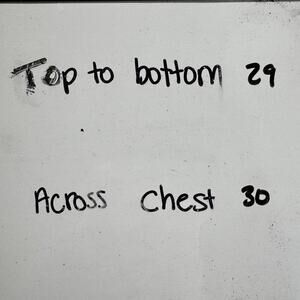 Top to bottom 29
Across Chest 30